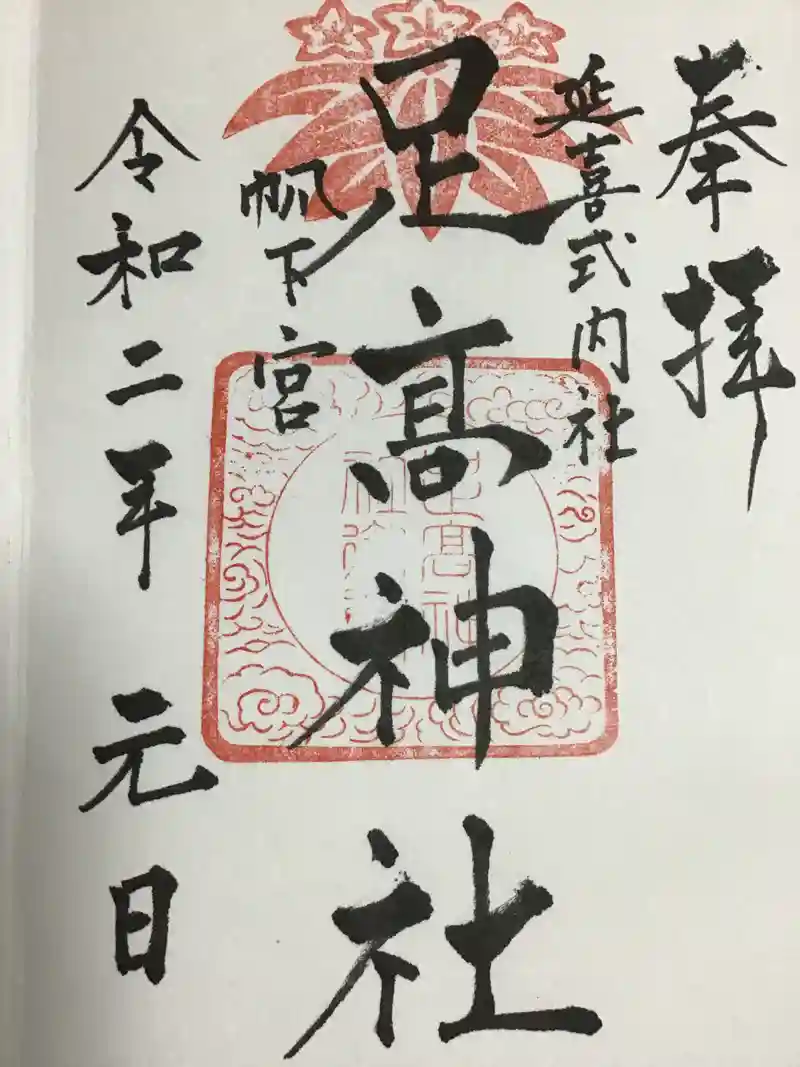 奉拝
延喜式内社
足高神社
帆下宮
令和二年元日